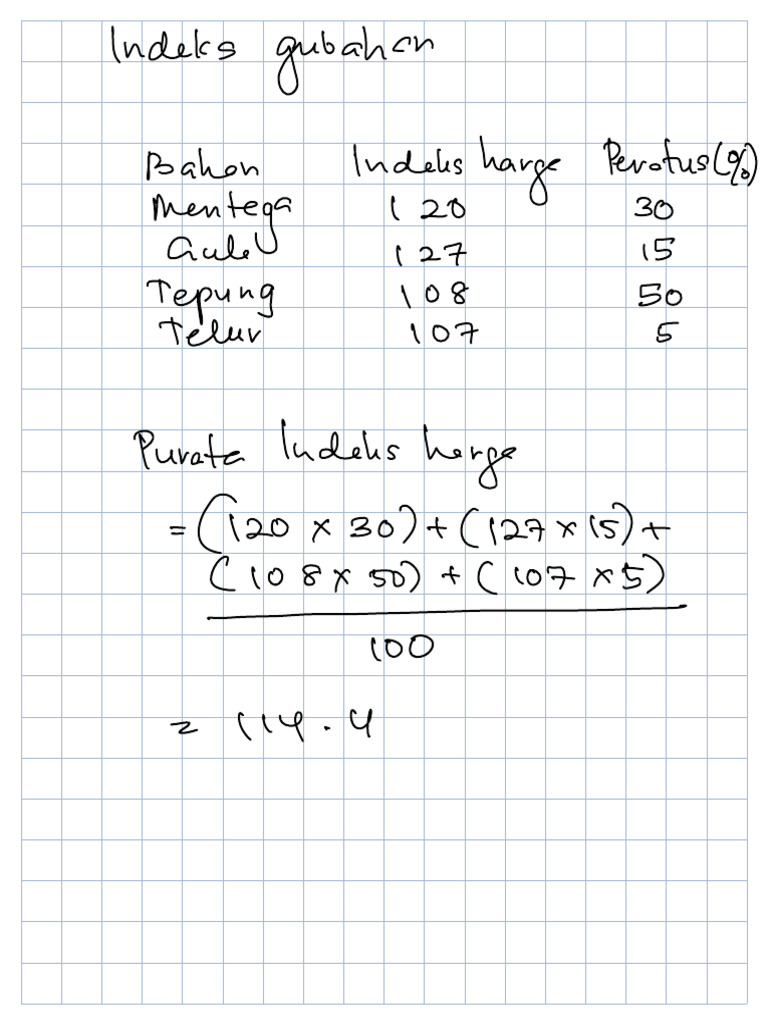 Indeks gubahan
Bahan Indeks harga Peratus (%)
Mentega 120 30
Gula 127 15
Tepung 108 50
Telur 107 5
Purata Indeks harga
= (120 × 30) + (127 × 15) +
(108 × 50) + (107 × 5)
100
= 114.4